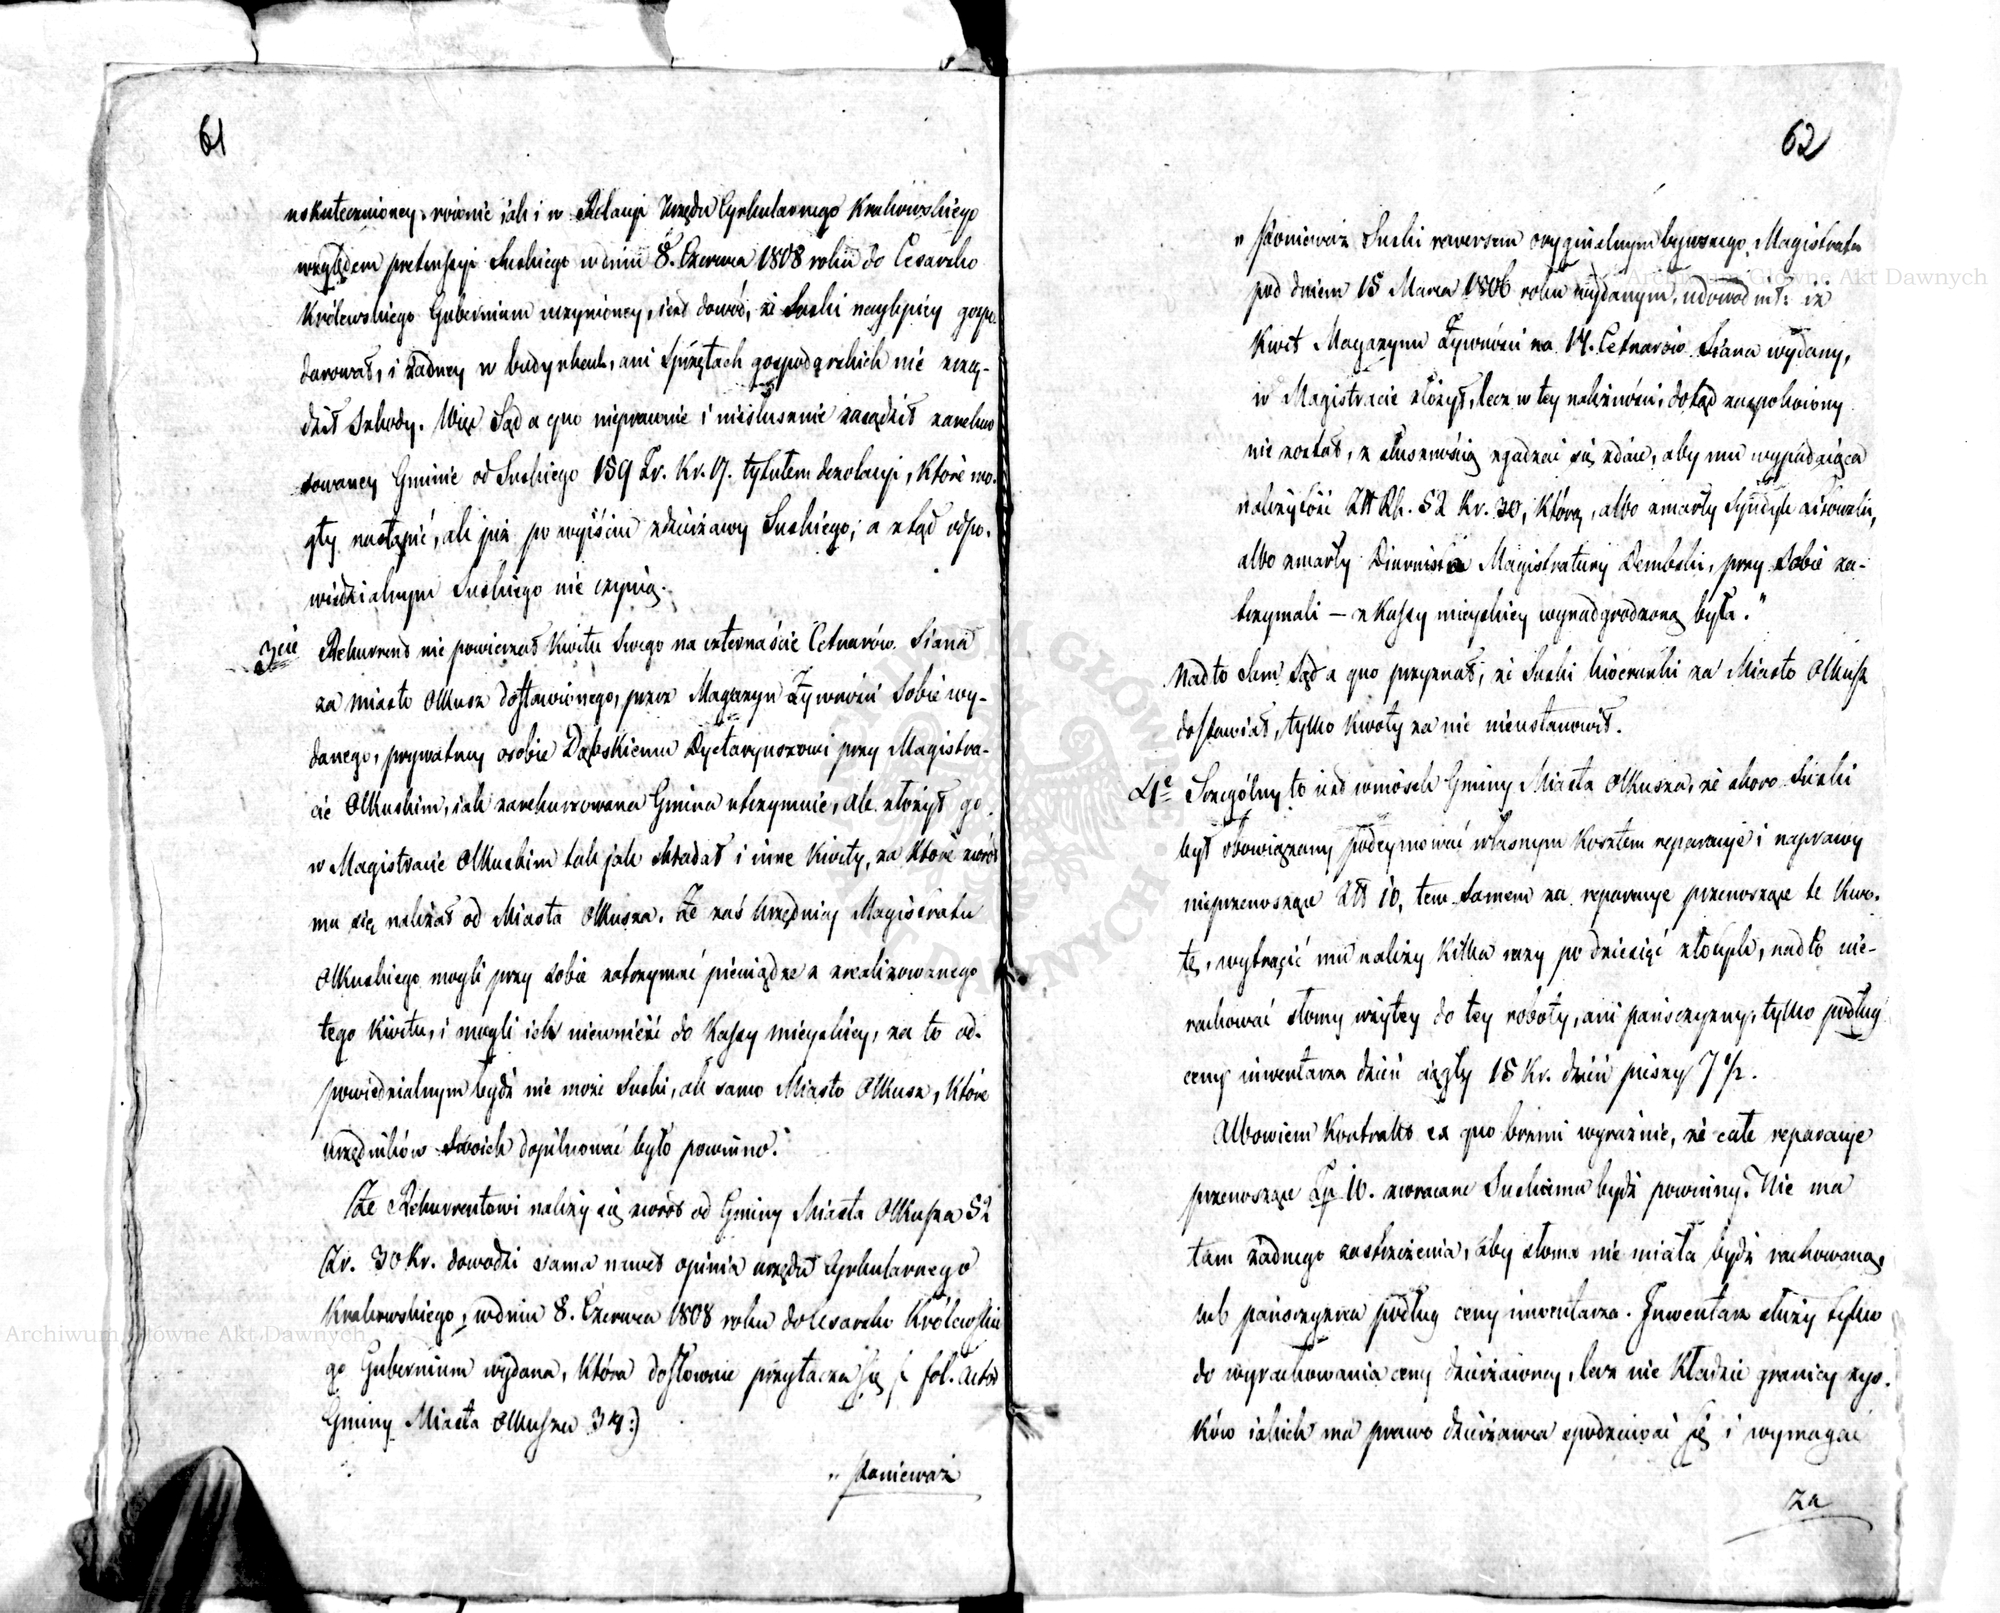 61
uskutecznioney, rownie iak i w Relacyi Urzędu Cyrkularnego Krakowskiego
względem pretensyi Suskiego w dniu 8. Czerwca 1808 roku do Cesarsko
Królewskiego Gubernium uczynioney, iest dowód, że Suski naylepiéy gospo-
darował, i żadney w budynkach, ani Sprzętach gospodarskich nie zrzą-
dził Szkody. Więc Sąd a quo nieprawnie i niesłusznie zasądził zarekur-
sowaney Gminie od Suskiego 159 Zr. Kr. 17. tytułem dezolacyi, które mo-
gły nastąpić, ale już po wyiściu z dzierżawy Suskiego; a ztąd odpo-
wiedzialnym Suskiego nie czynią.
3cie Rekurrens nie powierzał Kwitu Swego na czternaście Cetnarów Siana
za miasto Olkusz dostawionego, przez Magazyn Żywności Sobie wy-
danego, prywatney osobie Dąbskiemu Dyetaryuszowi przy Magistra-
cie Olkuskim, iak zarekursowana Gmina utrzymuie, ale złożył go
w Magistracie Olkuskim tak jak składał i inne Kwity, za które zwrót
mu się należał od Miasta Olkusza. Że zaś Urzędnicy Magistratu
Olkuskiego mogli przy sobie zatrzymać pieniądze z zrealizowanego
tego Kwitu, i mogli ich niewnieść do Kassy mieyskiey, za to od-
powiedzialnym bydź nie może Suski, ale samo Miasto Olkusz, które
urzędników swoich dopilnować było powinno.
Że Rekurrentowi należy się zwrót od Gminy Miasta Olkusza 52
Zr. 30 Kr. dowodzi sama nawet opinia urzędu Cyrkularnego
Krakowskiego, w dniu 8. Czerwca 1808 roku do Cesarsko Królewskie-
go Gubernium wydana, która dosłownie przytacza się (: fol. Actor
Gminy Miasta Olkusza 34:)
„ Ponieważ
62
„ Ponieważ Suski rewersem oryginalnym bywszego Magistratu
pod dniem 15 Marca 1806 roku wydanym, udowodnił: iż
Kwit Magazynu Żywności na 14. Cetnarów Siana wydany,
w Magistracie złożył, lecz w tey należności, dotąd zaspokoiony
nie został, z słusznością zgadzać się zdaie, aby mu wypadaiąca
należytość Zł Rh. 52 Kr. 30, którą, albo zmarły Syndyk
albo zmarły Diurnista Magistratury Dembski, przy Sobie za-
trzymali — z Kassy mieyskiey wynadgrodzoną była."
Nadto Sam Sąd a quo przyznał, że Suski liwerunki za Miasto Olkusz
dostawiał, tylko kwoty za nie nieustanowił.
4e Szczególny to iest wniosek Gminy Miasta Olkusza, że skoro Suski
był obowiązany podeymować własnym kosztem reparacyie i naprawy
nieprzenoszące Zł 10, tem samem za reparacye przenoszące te kwo-
tę, wytrącić mu należy kilka razy po dziesięć złotych, nadto nie-
rachować słomy użytey do tey roboty, ani pańszczyzny, tylko podług
ceny inwentarza dzień ciągły 15 Kr. dzień pieszy 7 1/2.
Albowiem Kontrakt ex quo brzmi wyraźnie, że całe reparacye
przenoszące Zp. 10. zwracane Suskiemu bydź powinny. Nie ma
tam żadnego zastrzeżenia, aby słoma nie miała bydź rachowana,
lub pańszczyzna podług ceny inwentarza. Inwentarz służy tylko
do wyrachowania ceny dzierżawney, lecz nie kładzie granicy zys-
ków iakich ma prawo dzierżawca spodziewać się i wymagać
za
Archiwum Główne Akt Dawnych